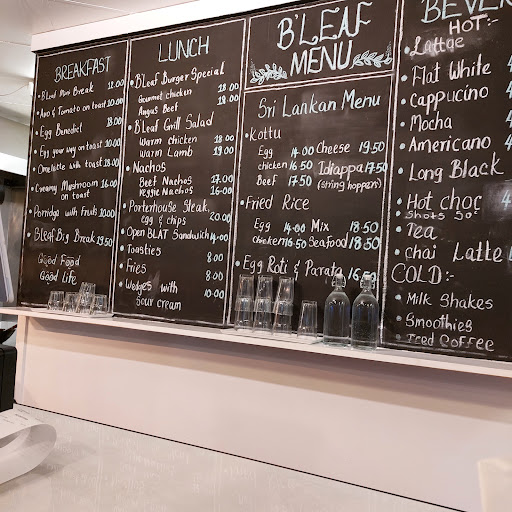 BREAKFAST
• B'Leaf Mini Break 12.00
• Avo & Tomato on toast
• Egg Benedict 18.00
• Egg your way on toast 10.00
• Omelette with toast 18.00
• Creamy Mushroom 16.00
on toast
• Porridge with fruits 10.00
• B'leaf Big Break 19.50
Good Food
Good Life
LUNCH
• B'Leaf Burger Special
Gourmet chicken 18.00
Angus Beef 18.00
• B'Leaf Grill Salad
Warm chicken 18.00
Warm Lamb 19.00
• Nachos
Beef Nachos 17.00
Veggie Nachos 16.00
• Porterhouse Steak,
egg & chips 20.00
• Open BLAT Sandwich 14.00
• Toasties 8.00
• Fries 8.00
• Wedges with
sour cream 10.00
B'LEAF
MENU
Sri Lankan Menu
• Kottu
Egg 14.00 Cheese 19.50
chicken 16.50 Idiappa 17.50
Beef 17.50 (string hoppers)
• Fried Rice
Egg 14.00 Mix 18.50
Chicken 16.50 Seafood 18.50
• Egg Roti & Parata 16.50
BEVER
HOT:-
• Lattae
• Flat White 4
• Cappucino 4
• Mocha
• Americano 4
• Long Black
• Hot choc 4
• Shots
• Tea
• chai Latte
COLD:-
• Milk Shakes
• Smoothies
• Iced Coffee